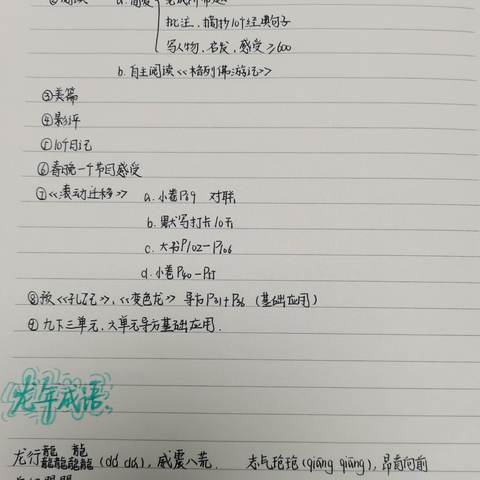 ②阅读 a.简爱
批注、摘抄10个经典句子
写人物、名发,感受≥600
b.自主阅读<<格列佛游记>>
③美篇
④影评
⑤10个日记
⑥春晚一个节目感受
⑦<<滚动迁移>> a.小卷P39 对联
b.默写打卡10天
c.大书P102-P106
d.小卷P40-P
⑧预<<孔乙己>>,<<变色龙>> 导方P31+P36(基础应用)
⑨九下三单元,六单元导方基础应用.
龙年成语.
龙行龘龘(dá dá),威震八荒. 志气玱玱(qiāng qiāng),昂首向前